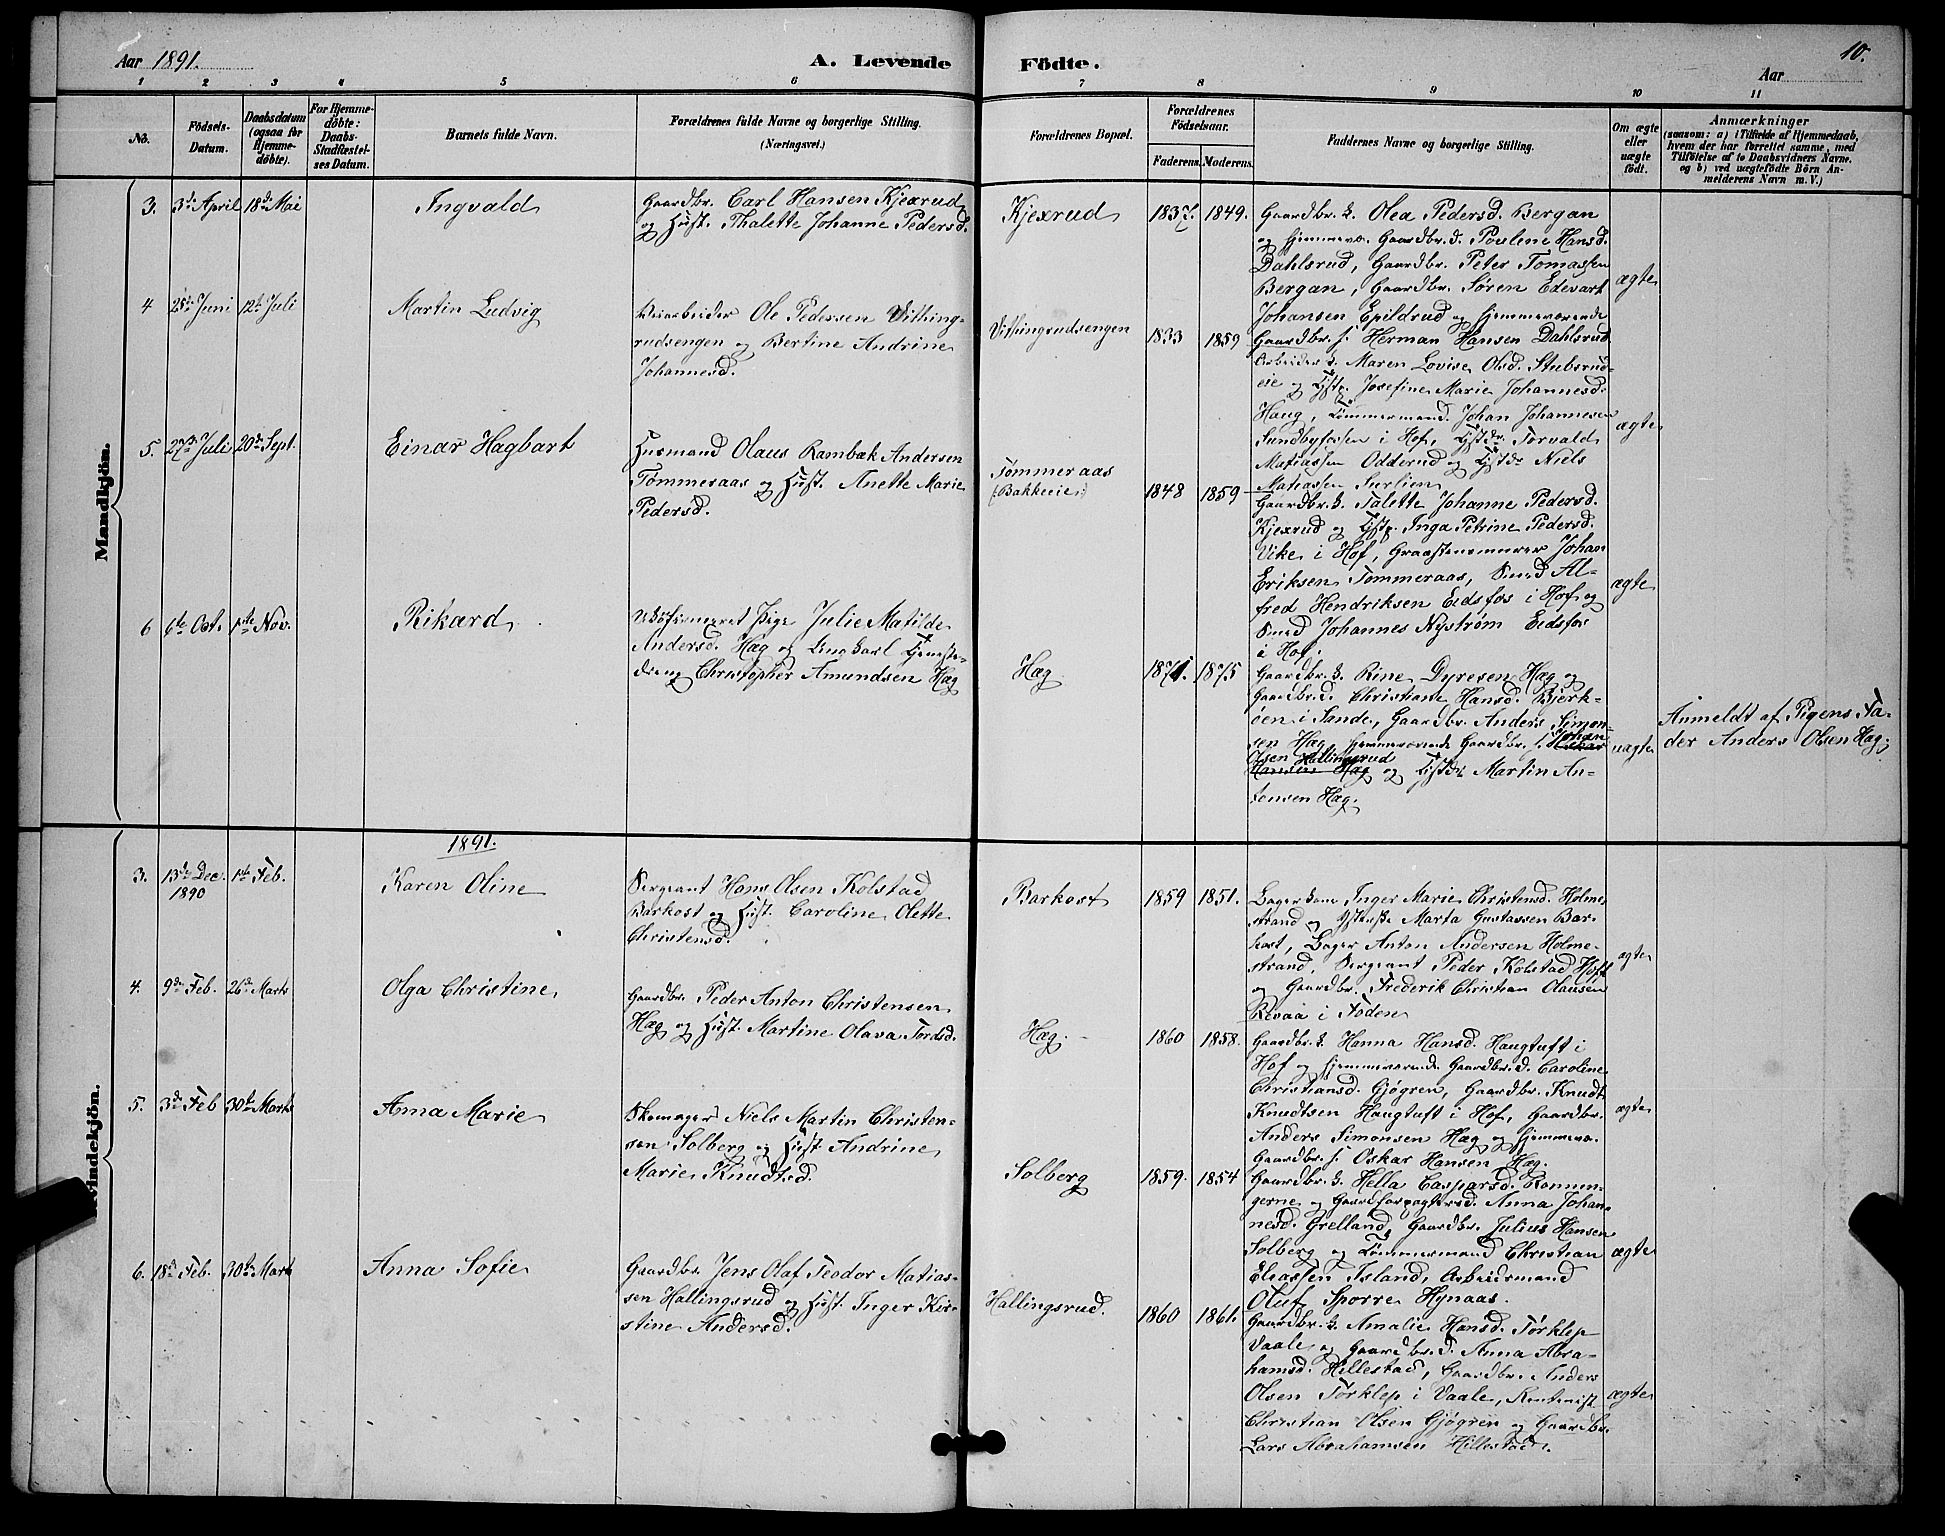 Aar 1891.
A. Levende Födte.
10.
Aar
1 2 3 4 5 6 7 8 9 10 11
No.
Födsels-
Datum.
Daabsdatum
(ogsaa for
Hjemme-
döbte).
For Hjemme-
döbte:
Daabs-
Stadfæstel-
ses Datum.
Barnets fulde Navn.
Forældrenes fulde Navne og borgerlige Stilling.
(Næringsvei.)
Forældrenes Bopæl.
Forældrenes
Födselsaar.
Faderens. Moderens.
Faddernes Navne og borgerlige Stilling.
Om ægte
eller
uægte
födt.
Anmærkninger
(saasom: a) i Tilfælde af Hjemmedaab,
hvem der har forrettet samme, med
Tilföielse af to Daabsvidners Navne,
og b) ved uægtefödte Börn An-
melderens Navn m. V.)
Mandkjön.
3. 3de April 18de Mai
Ingvald
Gaardbr. Carl Hansen Kjexrud
og Hust. Thalette Johanne Pedersd.
Kjexrud 1837. 1849.
Gaardbr. k. Olea Pedersd. Bergan
og hjemmevæ. Gaardbr. d. Poulene Hansd.
Dahlsrud, Gaardbr. Peter Tomassen
Bergan, Gaardbr. Søren Edevart
Johansen Epildrud og hjemmeværende
Gaardbr. s. Herman Hansen Dahlsrud
ægte
4 25de Juni 12te Juli
Martin Ludvig
Veiarbeider Ole Pedersen Vithing-
rudsengen og Bertine Andrine
Johannesd.
Vithingrudsengen 1833 1859
Arbeider k. Maren Lovise Olsd. Stubsrud-
eie og Tjstp. Josefine Marie Johannesd.
Haug, Tømmermand Johan Johannesen
Sundbyfossen i Hof, Tjstdr. Torvald
Matiassen Odderud og Tjstdr. Niels
Matiassen Surlien
ægte
5. 27de Juli 20de Sept.
Einar Hagbart
Husmand Olaus Rambæk Andersen
Tømmeraas og Hust. Anette Marie
Pedersd.
Tømmeraas
(Bakkeeie) 1848 1859
Gaardbr. k. Talette Johanne Pedersd.
Kjexrud og Tjstp. Inga Petrine Pedersd.
Vike i Hof, Graastensmurer Johan
Eriksen Tømmeraas, Smed Al-
fred Hendriksen Eidsfos i Hof og
Smed Johannes Nystrøm Eidsfos
i Hof.
ægte
6 6te Oct. 1ste Nov.
Rikard
Ukonfirmeret Pige Julie Matilde
Andersd. Hæg og Ungkarl Tjeneste-
dreng Christopher Amundsen Hæg
Hæg 1871. 1875
Gaardbr. k. Rine Dyresen Hæg og
Gaardbr. d. Christiane Hansd. Bjerk-
øen i Sande, Gaardbr. Anders Simon-
sen Hæg hjemmeværende Gaardbr. s. Johan
Olsen Hallingsrud
Hansen Hæg og Tjstdr. Martin An-
tonsen Hæg.
uægte
Anmeldt af Pigens Fa-
der Anders Olsen Hæg.
Kvindekjön.
1891.
3. 13de Dec. 1ste Feb.
1890
Karen Oline
Sergeant Hans Olsen Kolstad
Barkost og Hust. Caroline Olette
Christensd.
Barkost 1859 1851.
Bagerkone Inger Marie Christensd. Holme-
strand og Marta Gustassen Bar-
kost, Bager Anton Andersen Holme-
strand, Sergeant Peder Kolstad Hoft
og Gaardbr. Frederik Christian Olausen
Revaa i Foden
ægte
4. 9de Feb. 26de Marts
Olga Christine
Gaardbr. Peder Anton Christensen
Hæg og Hust. Martine Olava Tordsd.
Hæg. 1860 1858.
Gaardbr. k. Hanna Hansd. Haugtuft i
Hof og hjemmeværende Gaardbr. d. Caroline
Christiansd. Gjøgren, Gaardbr. Knudt
Knudtsen Haugtuft i Hof, Gaardbr.
Anders Simonsen Hæg og hjemmevæ.
Gaardbr. s. Oskar Hansen Hæg.
ægte
5. 3de Feb 30te Marts
Anna Marie
Skomager Niels Martin Christen-
sen Solberg og Hust. Andrine
Marie Knudtsd.
Solberg 1859. 1854
Gaardbr. k. Hella Caspersd. Ronnin-
gerne og Gaardforpagtersd. Anna Johan-
nesd. Grelland, Gaardbr. Julius Hansen
Solberg og Tømmermand Christian
Eliassen Island, Arbeidsmand
Oluf Sporre Hynaas.
ægte
6. 18de Feb. 30te Mart
Anna Sofie
Gaardbr. Jens Olaf Teodor Matias-
sen Hallingsrud og Hust. Inger Kir-
stine Andersd.
Hallingsrud. 1860 1861.
Gaardbr. k. Amalie Hansd. Tørklep
Vaale og Gaardbr. d. Anna Abra-
hamsd. Hillestad, Gaardbr. Anders
Olsen Tørklep i Vaale, Rentenist
Christian Olsen Gjøgren og Gaardbr.
Lars Abrahamsen Hillestad.
ægte